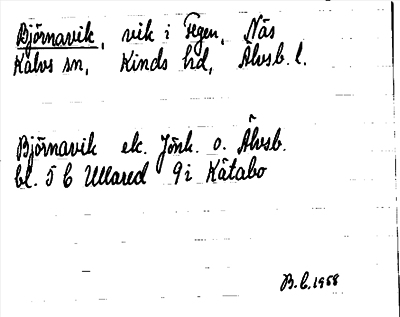 Björnavik, vik i Fegen, Näs
Kalvs sn, Kinds hd, Älvsb. l.
Björnavik ek. Jönk. o. Älvsb.
bl. 5 C Ullared 9 i Kätabo
B. C. 1958